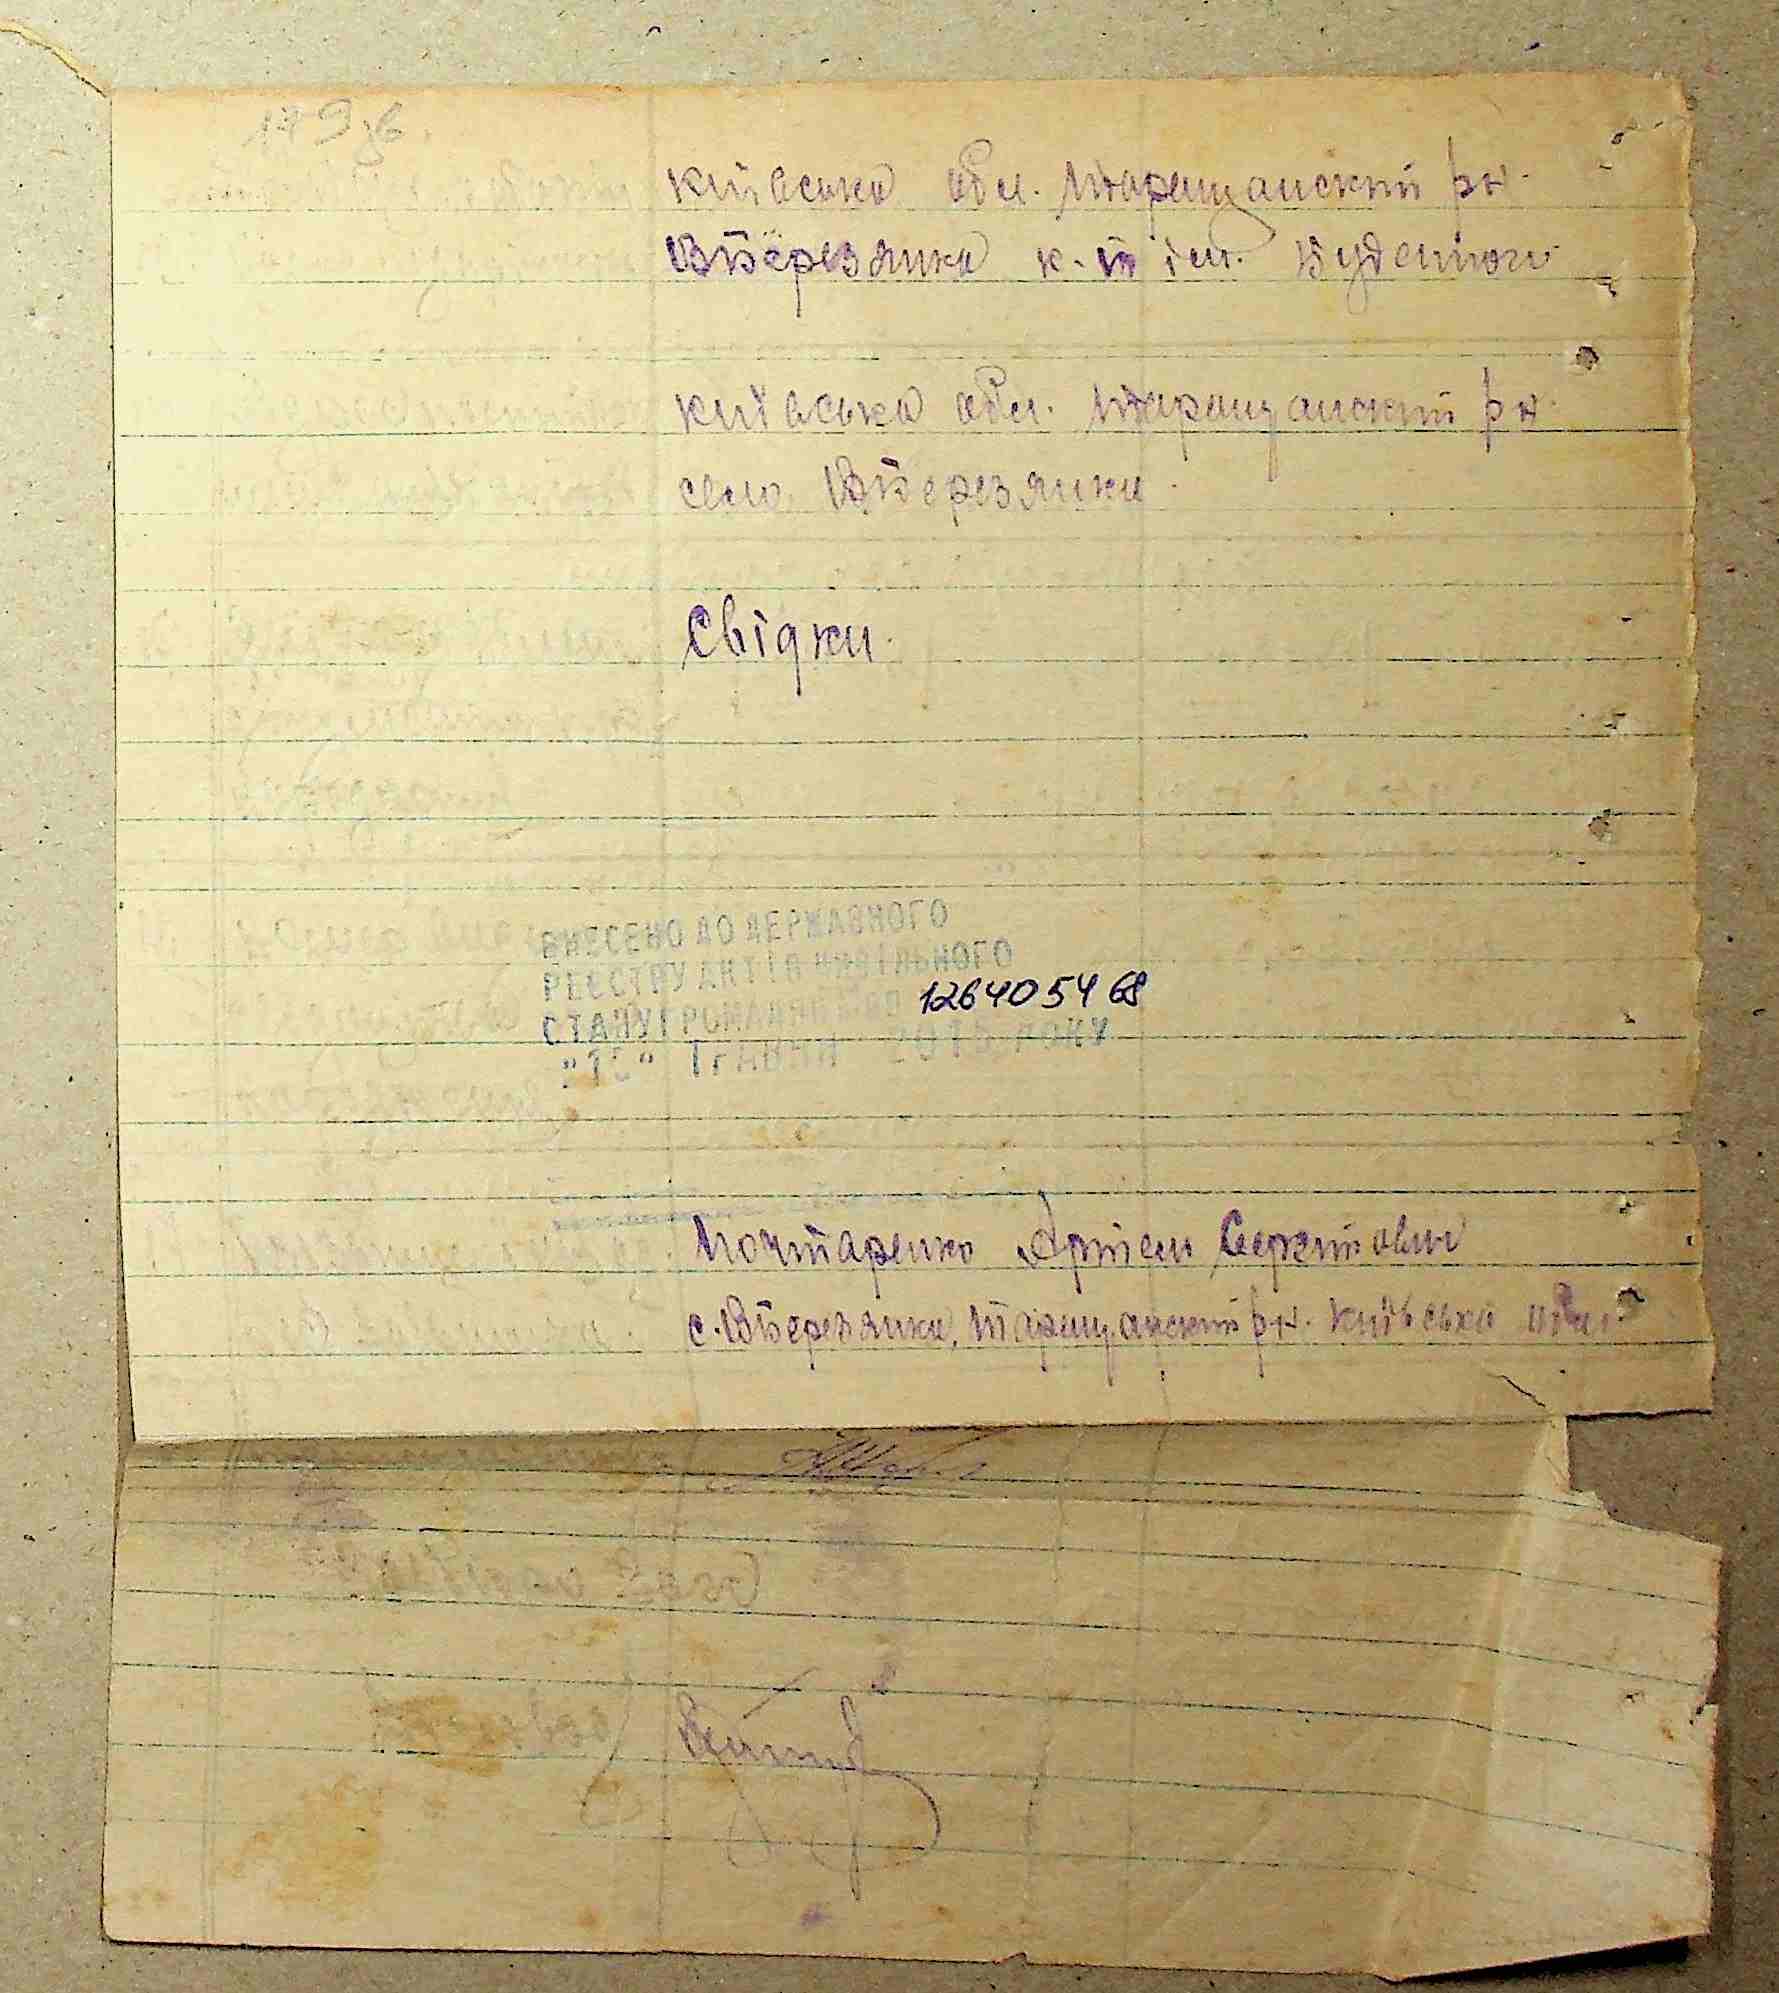 179 зв.
київська обл. Таращанский рн.
В Березянка к-п ім. Буденого
київська обл. Таращанский рн.
село В Березянка.
Свідки.
ВНЕСЕНО ДО ДЕРЖАВНОГО
РЕЄСТРУ АКТІВ ЦИВІЛЬНОГО
СТАНУ ГРОМАДЯН ЗА 1264054 68
" " ТРАВНЯ 2015 РОКУ
Почтаренко Артем Сергійович
с. В Березянка, Таращанский рн. Київська обл.